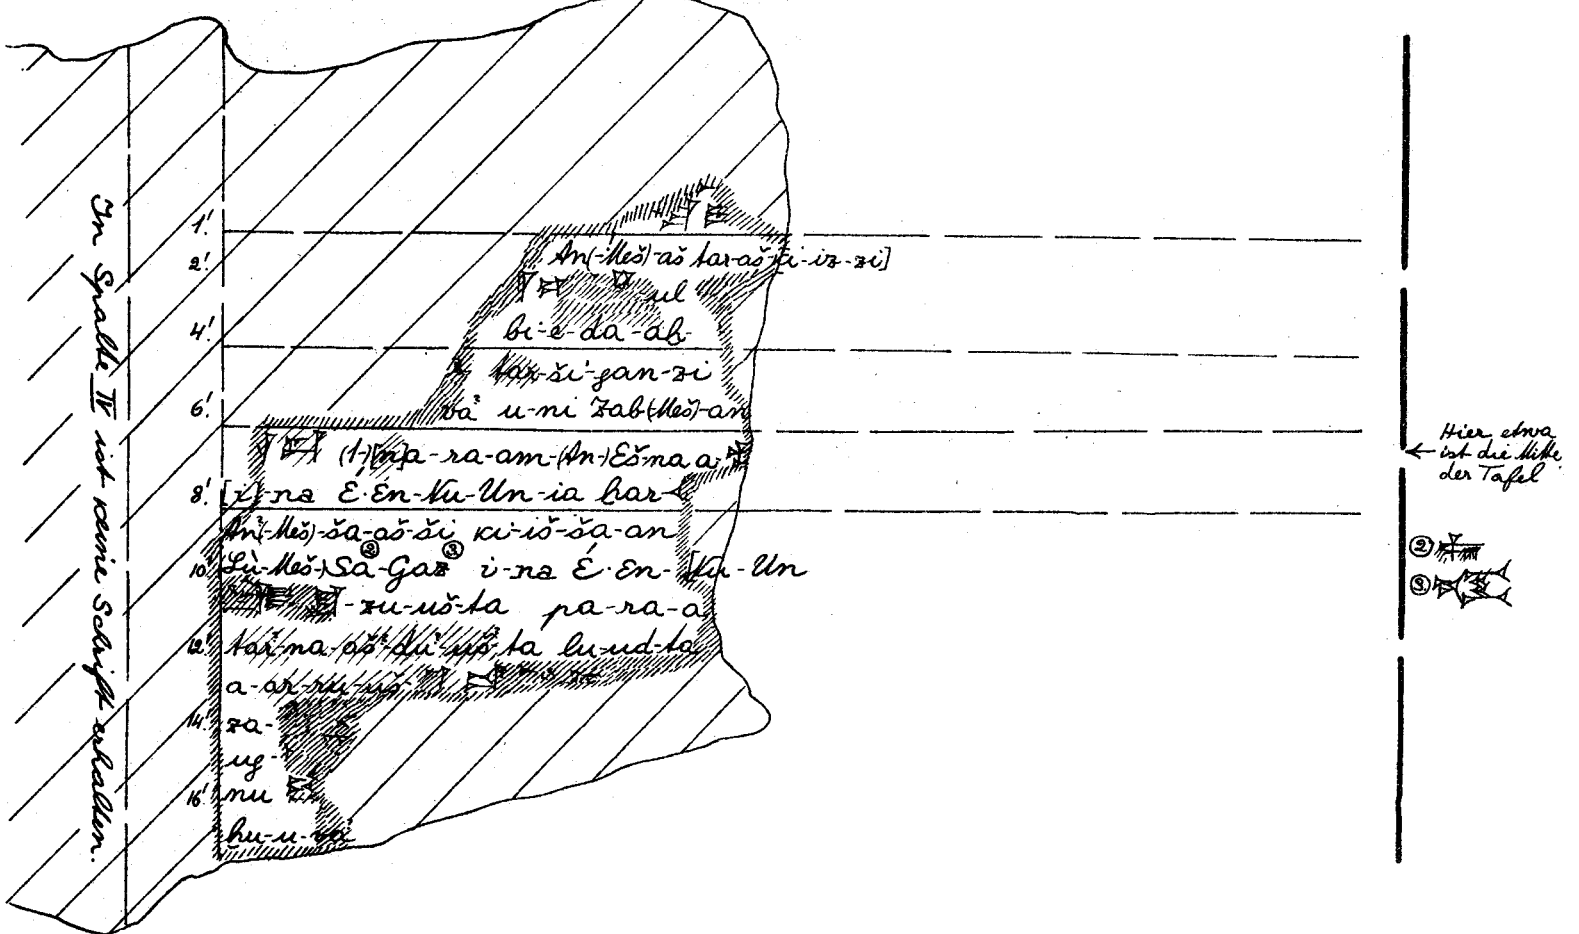 In Spalte IV ist keine Schrift erhalten.
1'.
2'. An(-Meš)-aš tar-aš-[ši-iz-zi]
ul
4'. bi-e-da-aḫ-
tar-ši-gan-zi
6'. vá? u-ni Zab(-Meš)-an
(1-)[n]a-ra-am-(An-)Eš-na a-
8'. [i]-na É.En-Nu-Un-ia har-
An?(-Meš)-ša-aš-ši ki-iš-ša-an
10'. Lù(-Meš-)Sa②-Gaz③ i-na É.En-[Nu-Un
-zu-uš-ta pa-ra-a
12'. tar?-na-aš?-du?-uš?-ta lu-ud-ta
a-ar-ru-uš-
14'. za-
ug-
16'. nu
hu-u-vá
Hier etwa
← ist die Mitte
der Tafel
②
③